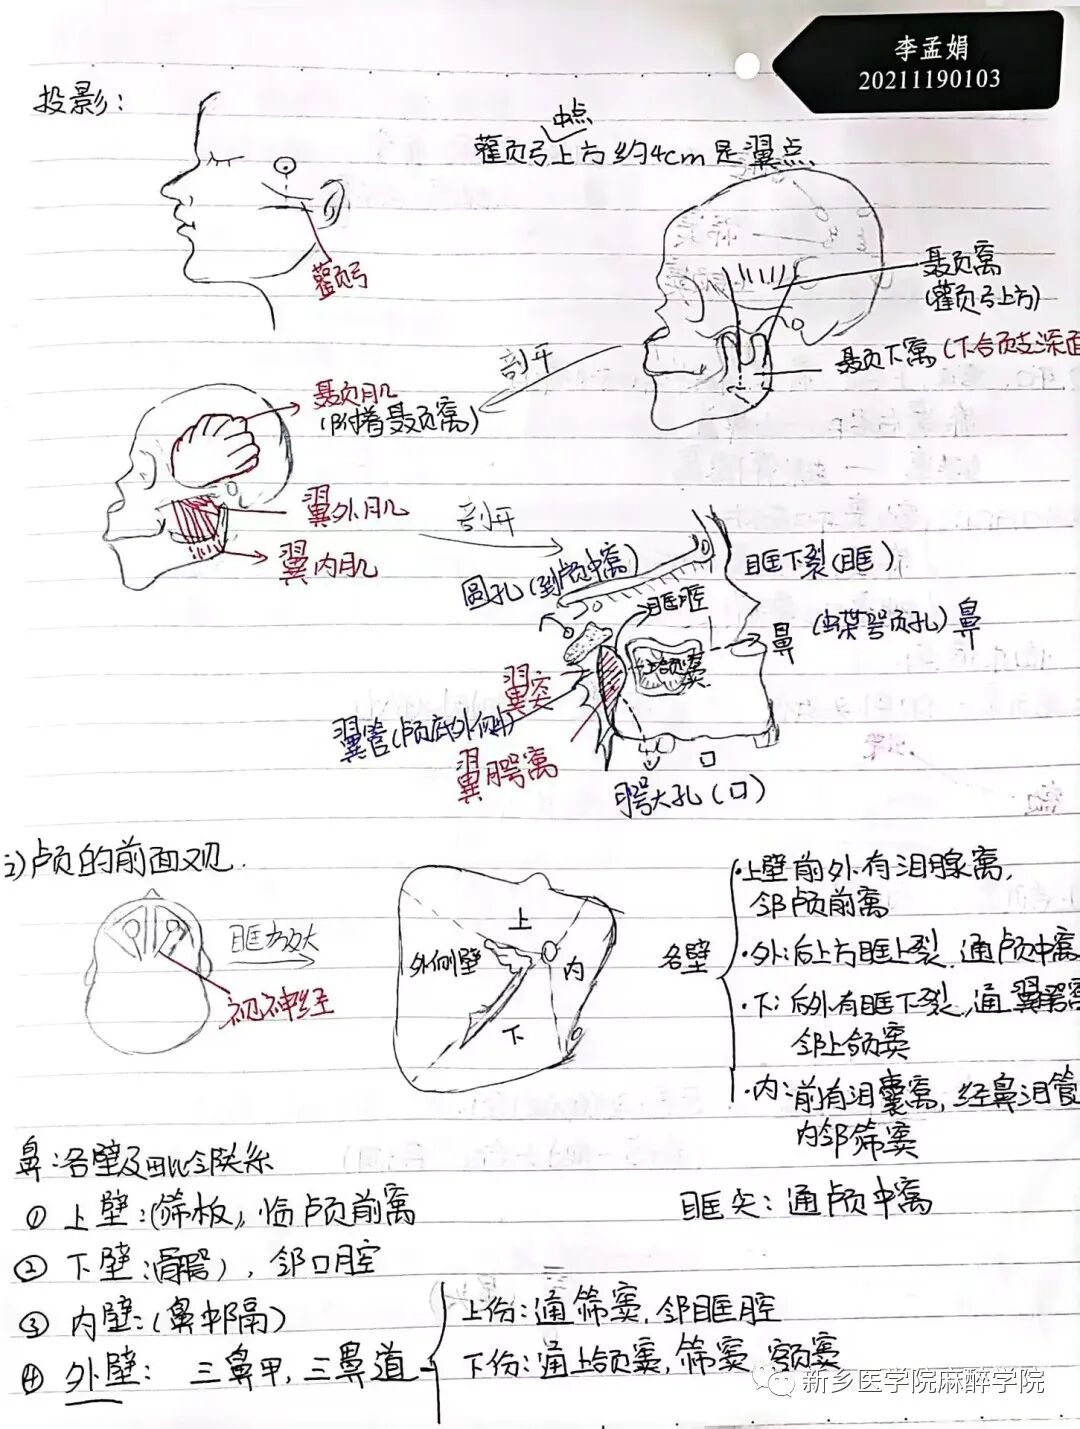 李孟娟
20211190103
投影:
中点
颧弓上方约4cm是翼点
颧弓
颞窝
(颧弓上方)
颞下窝(下颌支深面
剖开
颞肌
(附着颞窝)
翼外肌
翼内肌
剖开
圆孔(到颅中窝)
眶下裂(眶)
眶腔
鼻(蝶腭孔)鼻
上颌窦
翼突
翼管(颅底外侧)
翼腭窝
腭大孔(口)
2)颅的前面观.
眶放大
视神经
上
外侧壁
内
下
各壁
·上壁前外有泪腺窝,
邻颅前窝
·外:后上方眶上裂,通颅中窝
·下:后外有眶下裂,通翼腭窝
邻上颌窦
·内:前有泪囊窝,经鼻泪管
内邻筛窦
眶尖:通颅中窝
鼻:各壁及毗邻关系
① 上壁:(筛板),临颅前窝
② 下壁:(骨腭),邻口腔
③ 内壁:(鼻中隔)
④ 外壁: 三鼻甲,三鼻道
上份:通筛窦,邻眶腔
下份:通上颌窦,筛窦 额窦
新乡医学院麻醉学院